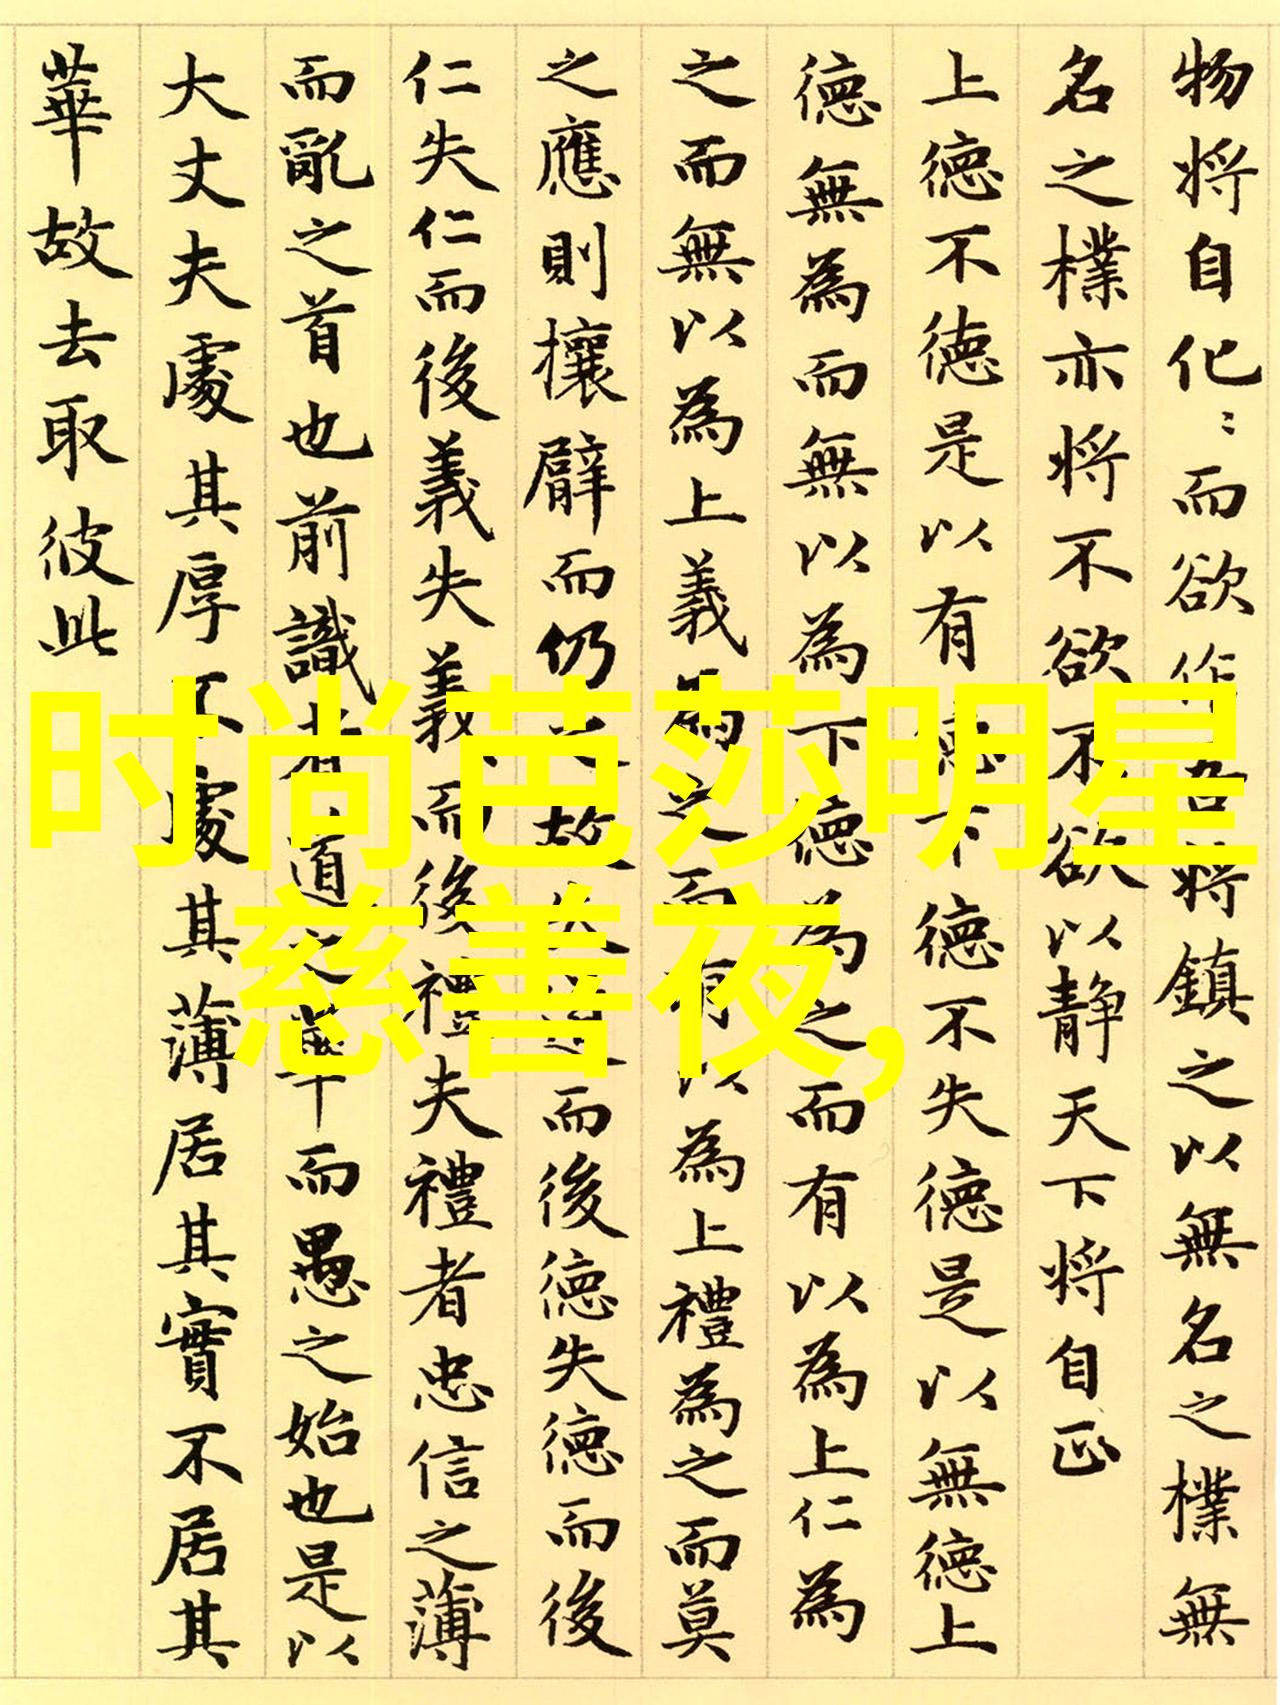 物将自化〻而欲作吾将鎮之以無名之樸無
名之樸亦将不欲不欲以静天下将自正
上德不德是以有德下德不失德是以無德上
德無為而無以為下德為之而有以為上仁為
之而無以為上義為之而有以為上禮為之而莫
之應則攘臂而仍之故失道而後德失德而後
仁失仁而後義失義而後禮夫禮者忠信之薄
而亂之首也前識者道之華而愚之始也是以
大丈夫處其厚不處其薄居其實不居其
華故去取彼此
时尚芭莎明星
慈善夜,